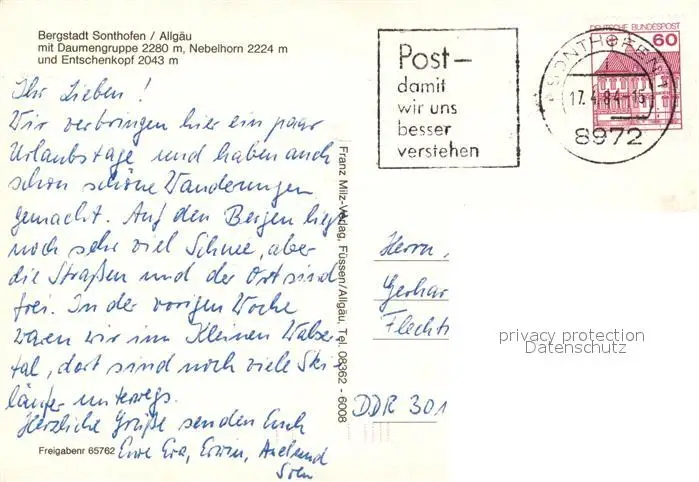 Bergstadt Sonthofen / Allgäu
mit Daumengruppe 2280 m, Nebelhorn 2224 m
und Entschenkopf 2043 m
Ihr Lieben!
Wir verbringen hier ein paar
Urlaubstage und haben auch
schon schöne Wanderungen
gemacht. Auf den Bergen liegt
noch sehr viel Schnee, aber
die Straßen und der Ort sind
frei. In der vorigen Woche
waren wir im Kleinen Walser
tal, dort sind noch viele Ski-
läufer unterwegs.
Herzliche Grüße senden Euch
Eure Eva, Erwin, Axel und
Sven
Freigabenr 65762
Franz Milz-Verlag, Füssen/Allgäu, Tel. 08362 - 6008
Post –
damit
wir uns
besser
verstehen
DEUTSCHE BUNDESPOST
60
SONTHOFEN 1
17.4.84-15
8972
Herrn
Gerhar
Flecht
DDR 301
privacy protection
Datenschutz